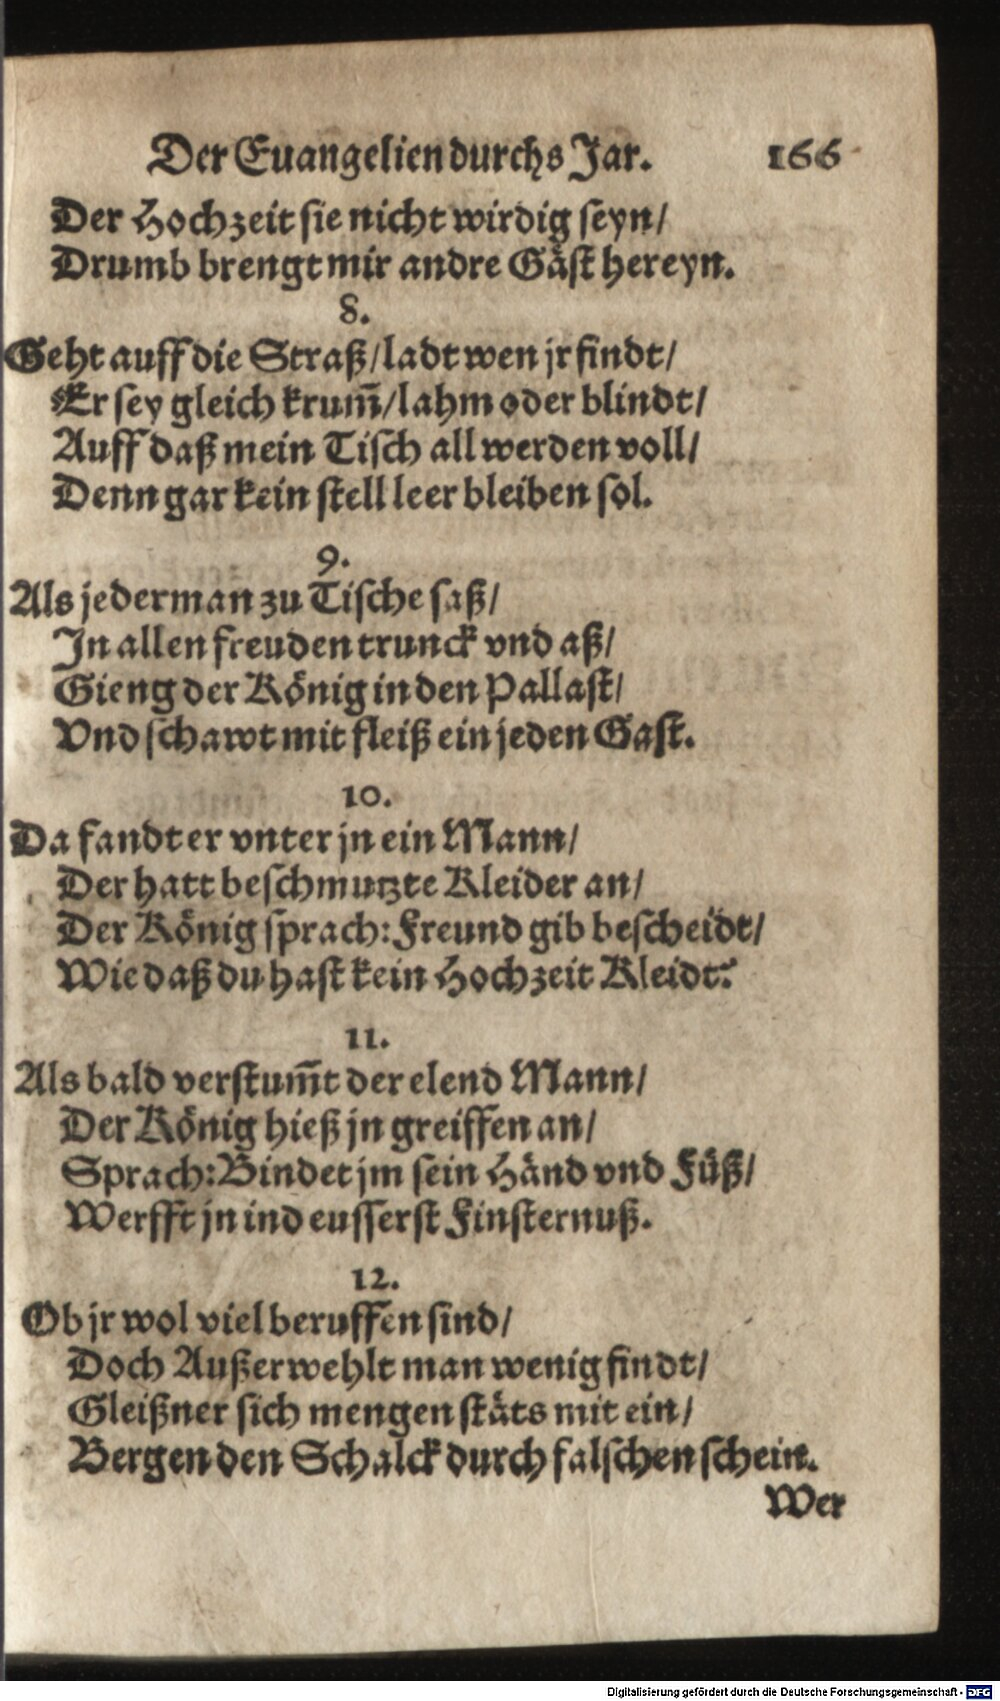 Der Euangelien durchs Jar. 166
Der Hochzeit sie nicht wirdig seyn/
Drumb brengt mir andre Gäst hereyn.
8.
Geht auff die Straß/ ladt wen jr findt/
Er sey gleich krum̃/ lahm oder blindt/
Auff daß mein Tisch all werden voll/
Denn gar kein stell leer bleiben sol.
9.
Als jederman zu Tische saß/
In allen freuden trunck vnd aß/
Gieng der König in den Pallast/
Vnd schawt mit fleiß ein jeden Gast.
10.
Da fandt er vnter jn ein Mann/
Der hatt beschmutzte Kleider an/
Der König sprach: Freund gib bescheidt/
Wie daß du hast kein Hochzeit Kleidt?
11.
Als bald verstum̃t der elend Mann/
Der König hieß jn greiffen an/
Sprach: Bindet jm sein Händ vnd Füß/
Werfft jn ind eusserst Finsternuß.
12.
Ob jr wol viel beruffen sind/
Doch Außerwehlt man wenig findt/
Gleißner sich mengen stäts mit ein/
Bergen den Schalck durch falschen schein.
Wer
Digitalisierung gefördert durch die Deutsche Forschungsgemeinschaft - DFG